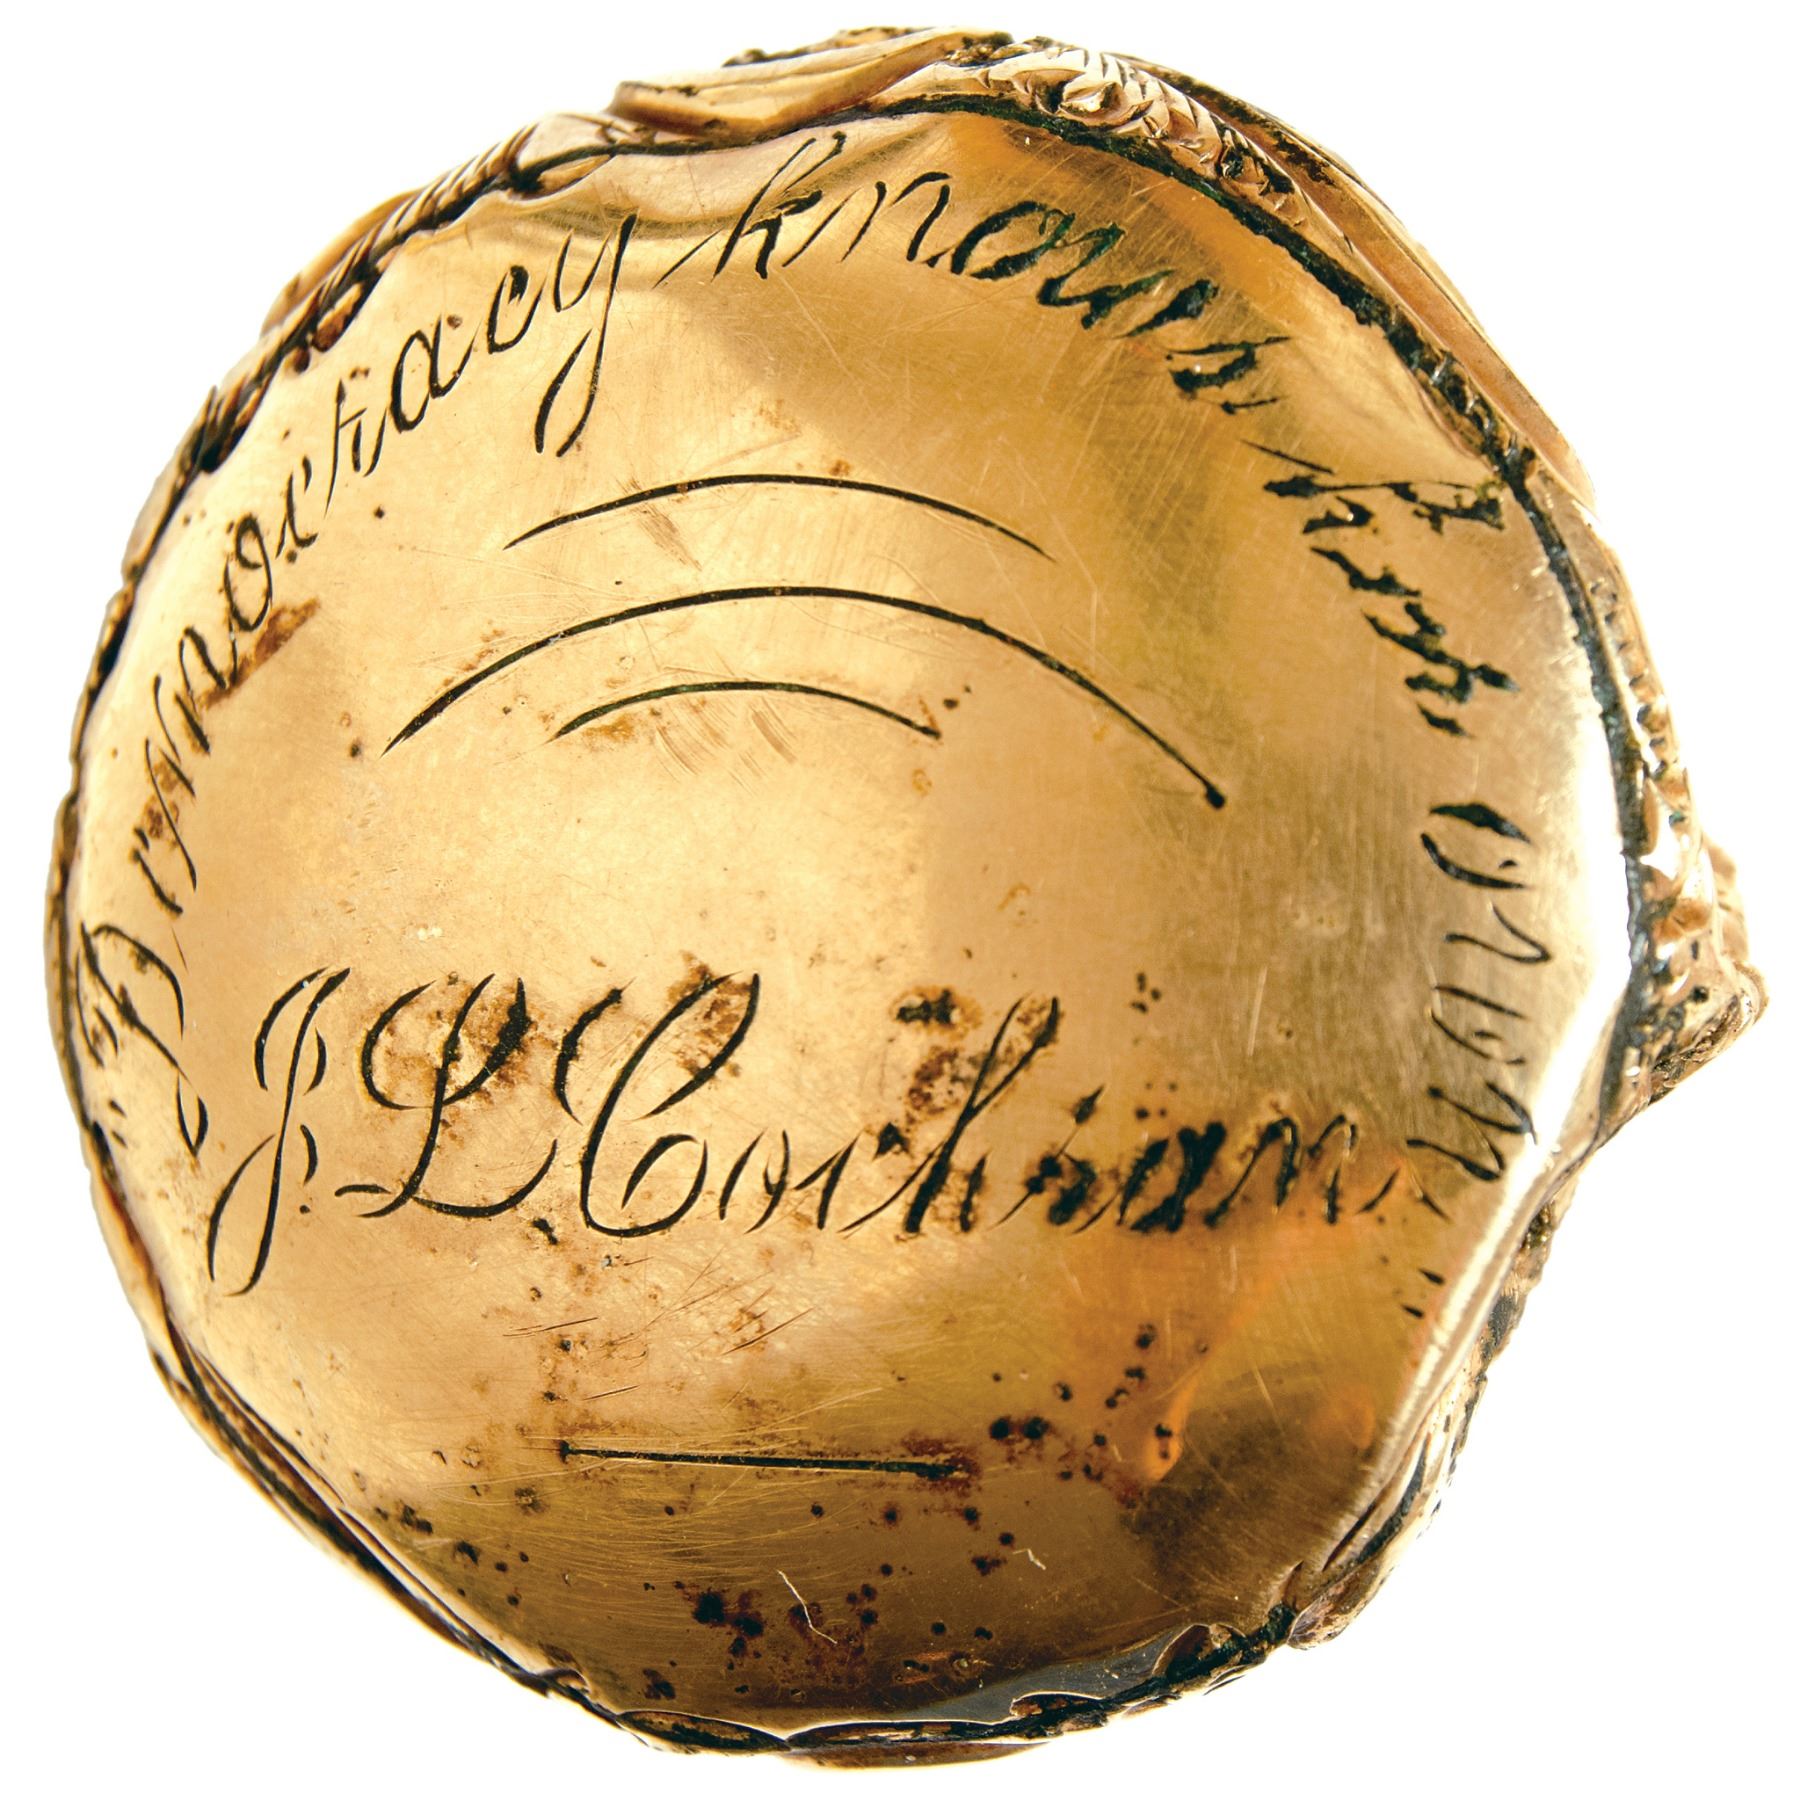 Democracy knows his own
J. L. Cochran.